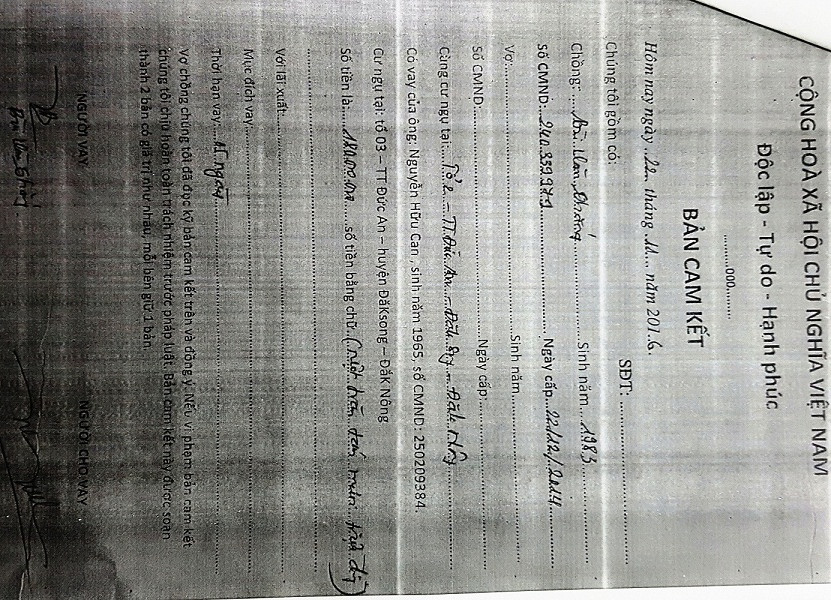 CỘNG HOÀ XÃ HỘI CHỦ NGHĨA VIỆT NAM
Độc lập - Tự do - Hạnh phúc
..........000..........
BẢN CAM KẾT
SĐT: ........................................
Hôm nay ngày ..22.. tháng .11... năm 201.6.
Chúng tôi gồm có:
Chồng: .....Bùi Văn ........................ Sinh năm....1983
Số CMND:...240.339.............. Ngày cấp...22/12/2014
Vợ:............................................ Sinh năm....................
Số CMND:.............................. Ngày cấp....................
Cùng cư ngụ tại:....Tổ 2 – TT. Đức An – Đăk Song – Đăk Nông
Có vay của ông: Nguyễn Hữu Can , sinh năm 1965, số CMND: 250209384.
Cư ngụ tại: tổ 03 – TT Đức An – huyện ĐăKsong – ĐăK Nông
Số tiền là:.....180.000.000......số tiền bằng chữ.(một trăm tám mươi triệu đồng)
................................................................
Với lãi xuất:................................................
Mục đích vay................................................
Thời hạn vay....15 ngày................................
Vợ chồng chúng tôi đã đọc kỹ bản cam kết trên và đồng ý. Nếu vi phạm bản cam kết
chúng tôi chịu hoàn toàn trách nhiệm trước pháp luật. Bản cam kết này được soạn
thành 2 bản có giá trị như nhau, mỗi bên giữ 1 bản.
NGƯỜI VAY NGƯỜI CHO VAY
Bùi Văn